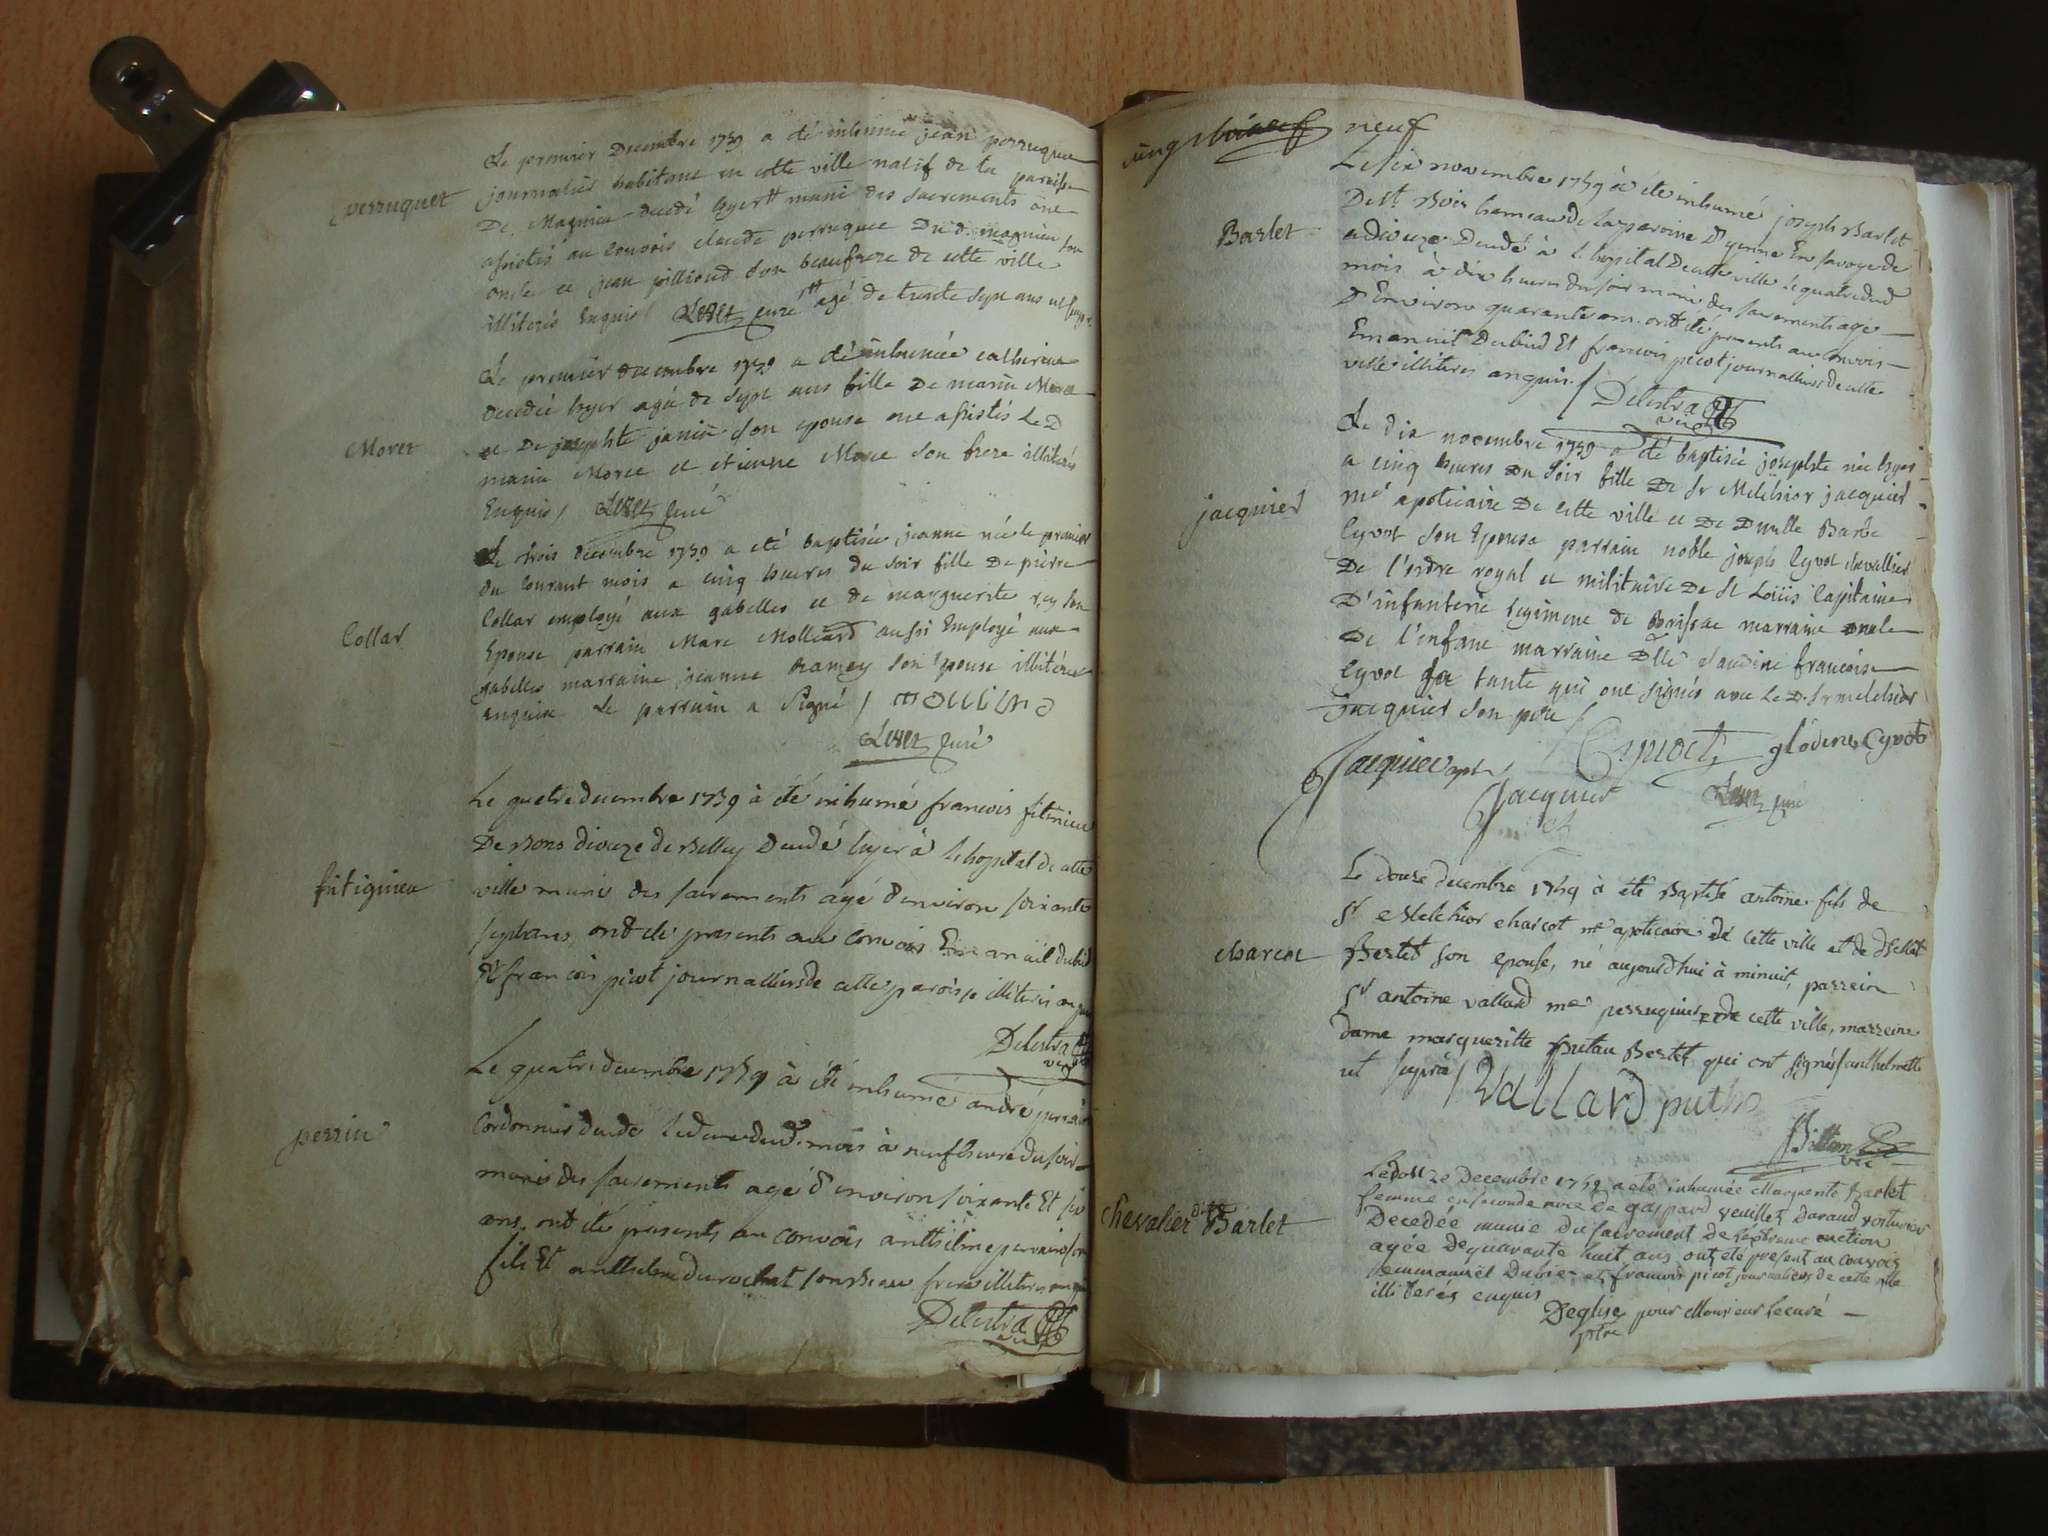 perruquet
Le premier Decembre 1759 a été inhumé jean perruquet
journalier habitant en cette ville natif de la paroisse
De Magnieu decedé hyer muni des sacrements ont
assistés au convois claude perruquet Du d. magnieu son
oncle et jean jullioud son beaufrere de cette ville
illiterés Enquis / curé agé de trente sept ans ut supra
Moret
Le premier decembre 1759 a été inhumée catherine
decedée hyer agée de sept ans fille De marin Moret
et De josephte janin son epouse ont assistés Le D
marin Moret et etienne Moret son frere illiterés
Enquis / curé
Collar
Le trois decembre 1759 a eté baptisée jeanne née le premier
du courant mois a cinq heures du soir fille De pierre
Collar employé aux gabelles et de marguerite rey son
Epouse parrain Marc Molliard aussi Employé aux
gabelles marraine jeanne ramey son Epouse illiterée
enquise Le parrain a signé /
curé
fitignieu
Le quatre decembre 1759 à été inhumé francois fitinieu
De Bons dioceze de Belley Decedé hyer à l hopital de cette
ville muni des sacrements agé d environ soixante
sept ans, ont été presents au convois Emanuël dubié
Et francois picot journalliers de cette paroisse illiterés enquis
Delestra
vic
perrin
Le quatre decembre 1759 à été inhumé andré perrin
Cordonnier decedé le deux dud. mois à neuf heure du soir
muni des sacrements agé d environ soixante Et six
ans. ont été presents au convois anthelme perrin son
fils Et anthelme durochat son Beau frere illiterés enquis
Delestra
vic
neuf
Barlet
Le six novembre 1759 à été inhumé joseph Barlet
De St. Bois hameau de la paroisse D yenne En savoye de
ce dioceze Decedé à l hopital De cette ville le quatre dud
mois à dix heures du soir muni des sacrements agé
D Environ quarante ans. ont été presents au convois
Emanuël Dubied Et francois picot journalliers de cette
ville illiterés enquis. /
Delestra
vic
jacquier
Le dix novembre 1759 a été baptisée josephte née hyer
a cinq heures du soir fille De Sr Melchior jacquier
me apoticaire De cette ville et De Dmlle Barbe
Cyvot son Epouse parrain noble joseph Cyvot chevallier
De l'ordre royal et militaire De St Loüis Capitaine
D'infanterie regiment de Brissac marraine oncle
De l'enfant marraine Dlle Claudine francoise
Cyvot sa tante qui ont signés avec Le D. Sr melchior
jacquier son pere /
Jacquier apt Cyvoct glodine Cyvot
Jacquier curé
charcot
Le douze decembre 1759 à été Baptisé antoine fils de
Sr Melchior charcot me apoticaire de cette ville et de
Bertet son epouse, né aujourdhui à minuit, parrein
Sr antoine vallard me perruquier de cette ville, marreine
dame margueritte Bertet, qui ont signés
ut suprà / Vallard puthod
Billion
vic
Chevalier dit Barlet
Le douze Decembre 1759 a eté inhumée Marguerite Barlet
femme en seconde noce de gaspard veuillet Daraud voiturier
Decedée munie du sacrement de lextreme onction
agée de quarante huit ans ont été present au convois
emmanuël Dubié et francois picot journaliers de cette ville
illiterés enquis
Deglise pour Monsieur le curé
ptre